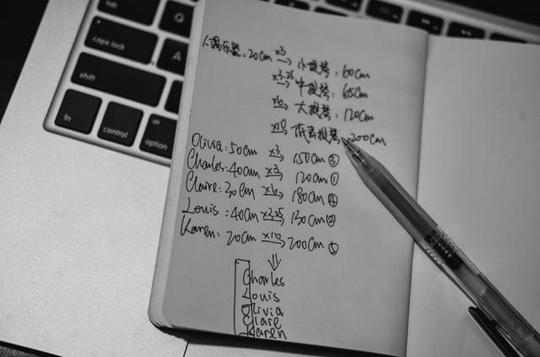 Q
caps lock
A
shift
fn
control
option
人偶乐器: 20cm ×3→ 小提琴: 60cm
×3.25→ 中提琴: 65cm
×6→ 大提琴: 120cm
×10→ 低音提琴: 200cm
Olivia: 50cm ×3→ 150cm ③
Charles: 40cm ×3→ 120cm ①
Claire: 30cm ×6→ 180cm ④
Louis: 40cm ×3.25→ 130cm ②
Karen: 20cm ×10→ 200cm ⑤
⇓
Charles
Louis
Olivia
Clare
Karen